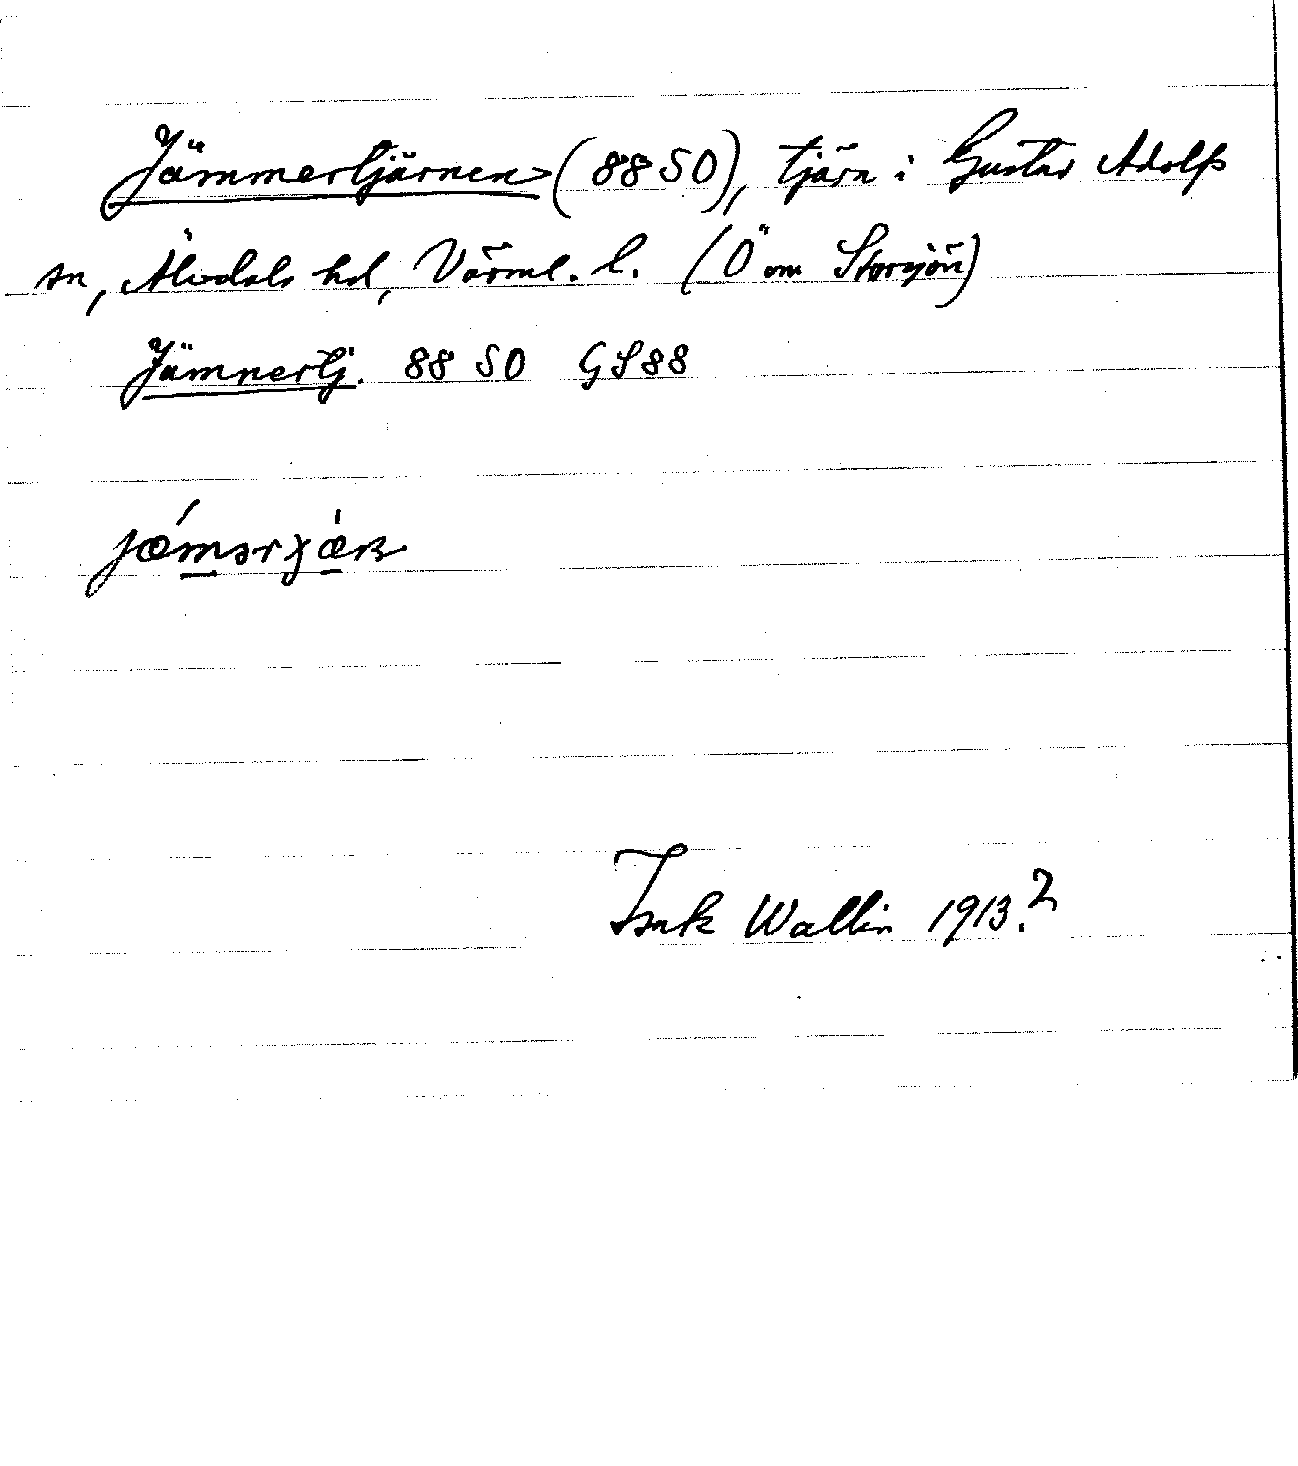 Jämmertjärnen (88 SO), tjärn i Gustav Adolfs
sn, Älvdals hd, Värml. l. (Ö om Storsjön)
Jämnertj. 88 SO GS88
Isak Wallin 1913.?